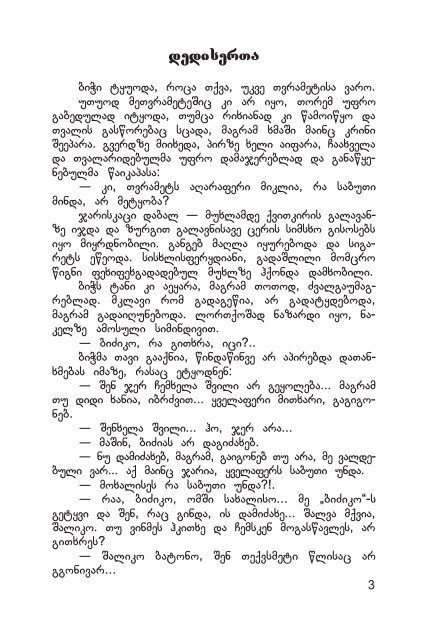 დედისერთა
ბიჭი ტყუოდა, როცა თქვა, უკვე თვრამეტისა ვარო.
უთუოდ მეთვრამეტეშიც კი არ იყო, თორემ უფრო
გაბედულად იტყოდა, თუმცა რიხიანად კი წამოიწყო და
თვალის გასწორებაც სცადა, მაგრამ ხმაში მაინც კრინი
შეეპარა. გვერდზე მიიხედა, პირზე ხელი აიფარა, ჩაახველა
და თვალარიდებულმა უფრო დამაჯერებლად და განაწყე-
ნებულმა წაიკაპასა:
— კი, თვრამეტს აღარაფერი მიკლია, რა საბუთი
მინდა, არ მეტყობა?
ჯარისკაცი დაბალ — მუხლამდე ქვითკირის გალავან-
ზე იჯდა და ზურგით გალავნისავე ცერის სიმსხო გისოსებს
იყო მიყრდნობილი. განგებ მაღლა იყურებოდა და სიგა-
რეტს ეწეოდა. სისხლისფერყდიანი, გადაშლილი მომცრო
წიგნი ფეხიფეხგადადებულ მუხლზე ჰქონდა დამხობილი.
ბიჭს ტანი კი აეყარა, მაგრამ თოთოდ, ძვალგაუმაგ-
რებლად. მკლავი რომ გადაგეწია, არ გადატყდებოდა,
მაგრამ გადაიღუნებოდა. ლორთქოშად ნაზარდი იყო, ნა-
კელზე ამოსული სიმინდივით.
— ბიძიკო, რა გითხრა, იცი?..
ბიჭმა თავი გააქნია, წინდაწინვე არ აპირებდა დათან-
ხმებას იმაზე, რასაც ეტყოდნენ:
— შენ ჯერ ჩემხელა შვილი არ გეყოლება... მაგრამ
თუ დიდი ხანია, იბრძვით... ყველაფერი მითხარი, გაგიგო-
ნებ.
— შენხელა შვილი... ჰო, ჯერ არა...
— მაშინ, ბიძიას არ დაგიძახებ.
— ნუ დამიძახებ, მაგრამ, გაიგონებ თუ არა, მე ვალდე-
ბული ვარ... აქ მაინც ჯარია, ყველაფერს საბუთი უნდა.
— მოხალისეს რა საბუთი უნდა?!.
— რაა, ბიძიკო, ომში სახალისო... მე „ბიძიკო“-ს
გეტყვი და შენ, რაც გინდა, ის დამიძახე... შალვა მქვია,
შალიკო. თუ ვინმეს ჰკითხე და ჩემსკენ მოგასწავლეს, არ
გითხრეს?
— შალიკო ბატონო, შენ თექვსმეტი წლისაც არ
გგონივარ...
3